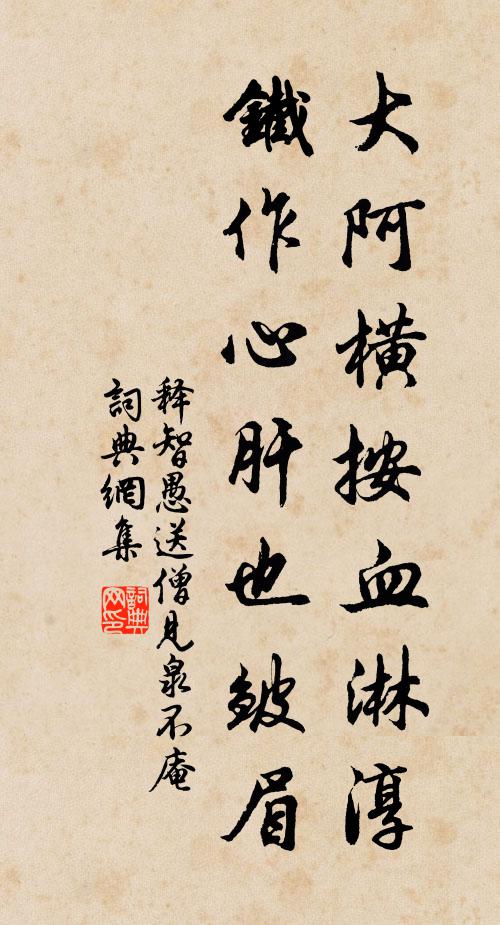 大阿橫按血淋淳
鐵作心肝也皺眉
释智愚送僧見泉不庵
詞典網集
詞典網印